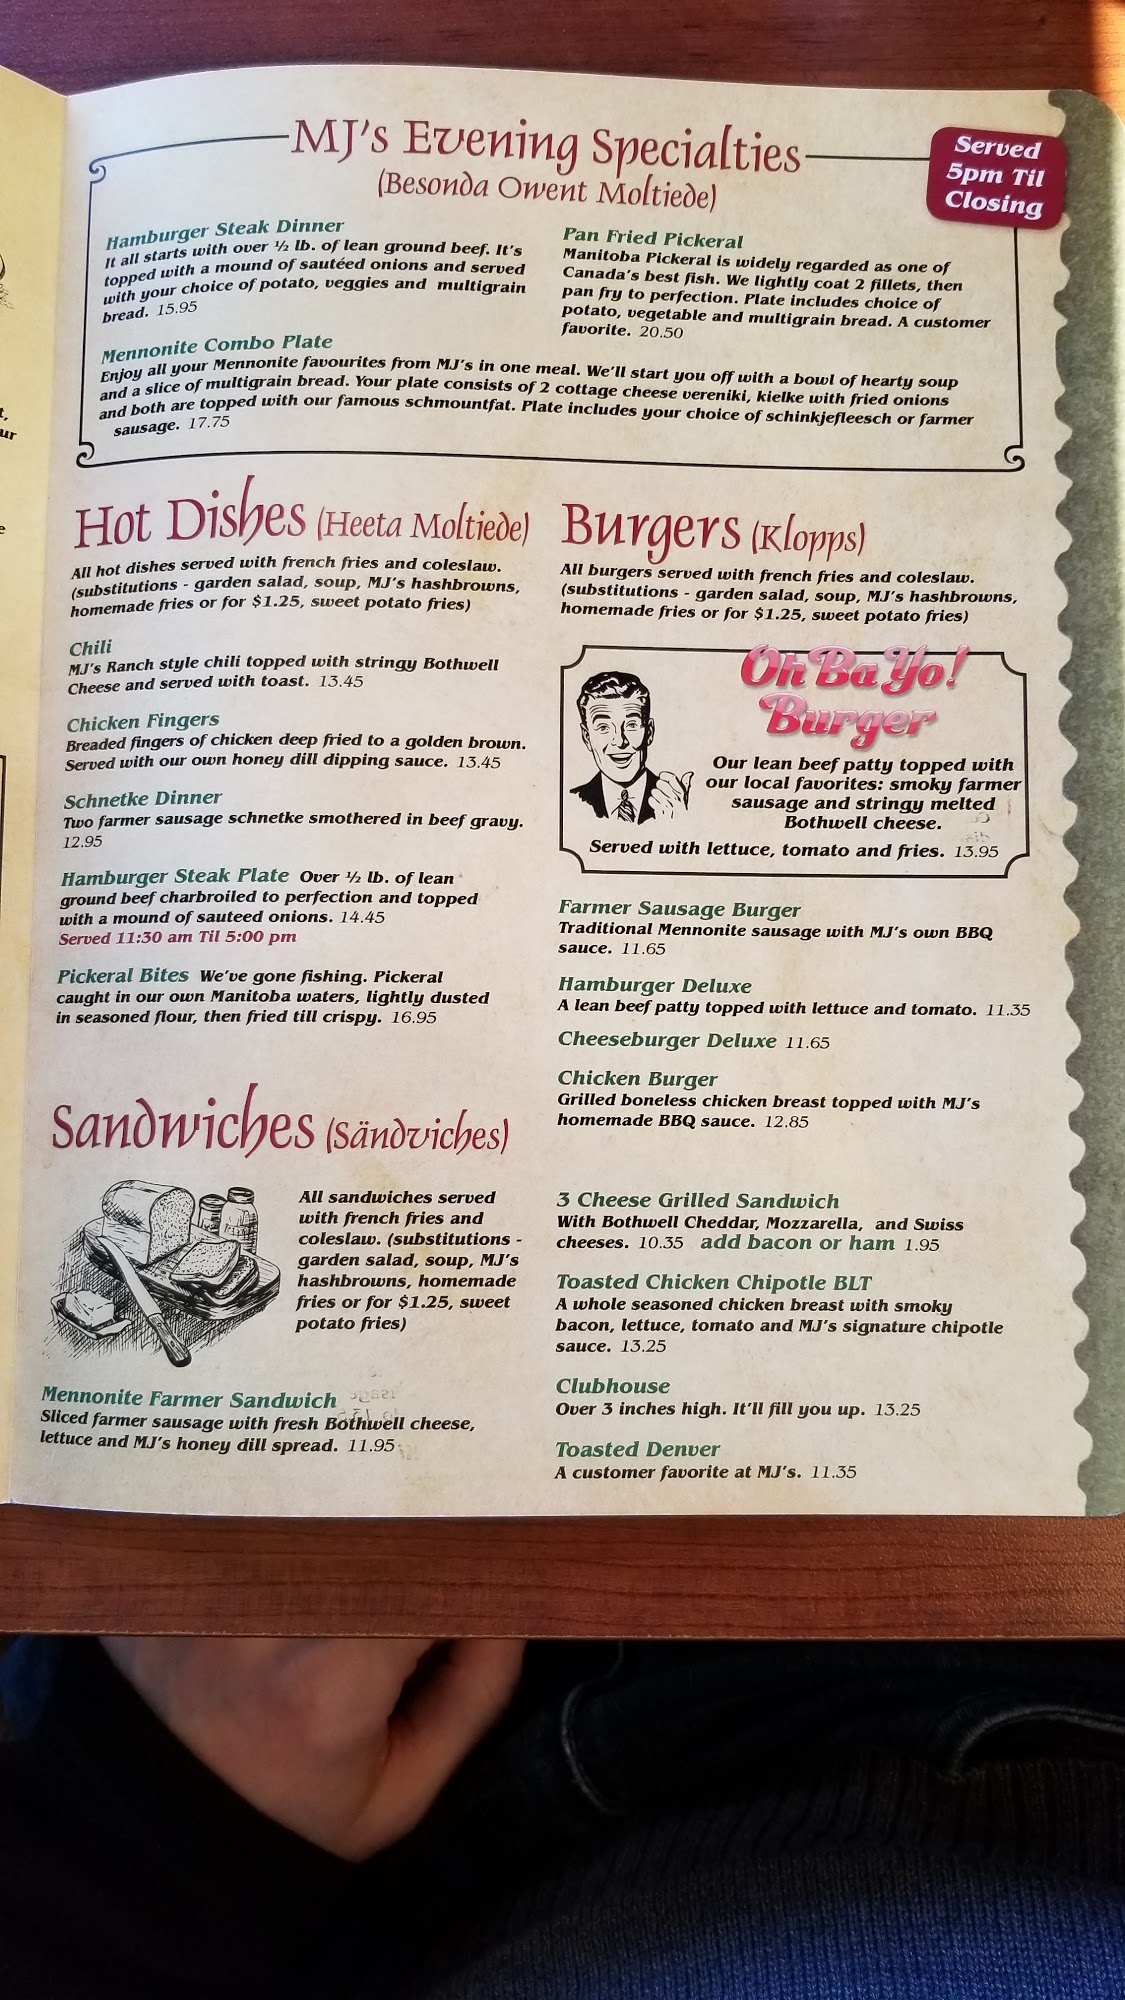 MJ's Evening Specialties
(Besonda Owent Moltiede)
Served
5pm Til
Closing
Hamburger Steak Dinner
It all starts with over ½ lb. of lean ground beef. It's
topped with a mound of sautéed onions and served
with your choice of potato, veggies and multigrain
bread. 15.95
Pan Fried Pickeral
Manitoba Pickeral is widely regarded as one of
Canada's best fish. We lightly coat 2 fillets, then
pan fry to perfection. Plate includes choice of
potato, vegetable and multigrain bread. A customer
favorite. 20.50
Mennonite Combo Plate
Enjoy all your Mennonite favourites from MJ's in one meal. We'll start you off with a bowl of hearty soup
and a slice of multigrain bread. Your plate consists of 2 cottage cheese vereniki, kielke with fried onions
and both are topped with our famous schmountfat. Plate includes your choice of schinkjefleesch or farmer
sausage. 17.75
Hot Dishes (Heeta Moltiede)
All hot dishes served with french fries and coleslaw.
(substitutions - garden salad, soup, MJ's hashbrowns,
homemade fries or for $1.25, sweet potato fries)
Chili
MJ's Ranch style chili topped with stringy Bothwell
Cheese and served with toast. 13.45
Chicken Fingers
Breaded fingers of chicken deep fried to a golden brown.
Served with our own honey dill dipping sauce. 13.45
Schnetke Dinner
Two farmer sausage schnetke smothered in beef gravy.
12.95
Hamburger Steak Plate Over ½ lb. of lean
ground beef charbroiled to perfection and topped
with a mound of sauteed onions. 14.45
Served 11:30 am Til 5:00 pm
Pickeral Bites We've gone fishing. Pickeral
caught in our own Manitoba waters, lightly dusted
in seasoned flour, then fried till crispy. 16.95
Burgers (Klopps)
All burgers served with french fries and coleslaw.
(substitutions - garden salad, soup, MJ's hashbrowns,
homemade fries or for $1.25, sweet potato fries)
Oh Ba Yo!
Burger
Our lean beef patty topped with
our local favorites: smoky farmer
sausage and stringy melted
Bothwell cheese.
Served with lettuce, tomato and fries. 13.95
Farmer Sausage Burger
Traditional Mennonite sausage with MJ's own BBQ
sauce. 11.65
Hamburger Deluxe
A lean beef patty topped with lettuce and tomato. 11.35
Cheeseburger Deluxe 11.65
Chicken Burger
Grilled boneless chicken breast topped with MJ's
homemade BBQ sauce. 12.85
Sandwiches (Sändviches)
All sandwiches served
with french fries and
coleslaw. (substitutions -
garden salad, soup, MJ's
hashbrowns, homemade
fries or for $1.25, sweet
potato fries)
Mennonite Farmer Sandwich
Sliced farmer sausage with fresh Bothwell cheese,
lettuce and MJ's honey dill spread. 11.95
3 Cheese Grilled Sandwich
With Bothwell Cheddar, Mozzarella, and Swiss
cheeses. 10.35 add bacon or ham 1.95
Toasted Chicken Chipotle BLT
A whole seasoned chicken breast with smoky
bacon, lettuce, tomato and MJ's signature chipotle
sauce. 13.25
Clubhouse
Over 3 inches high. It'll fill you up. 13.25
Toasted Denver
A customer favorite at MJ's. 11.35